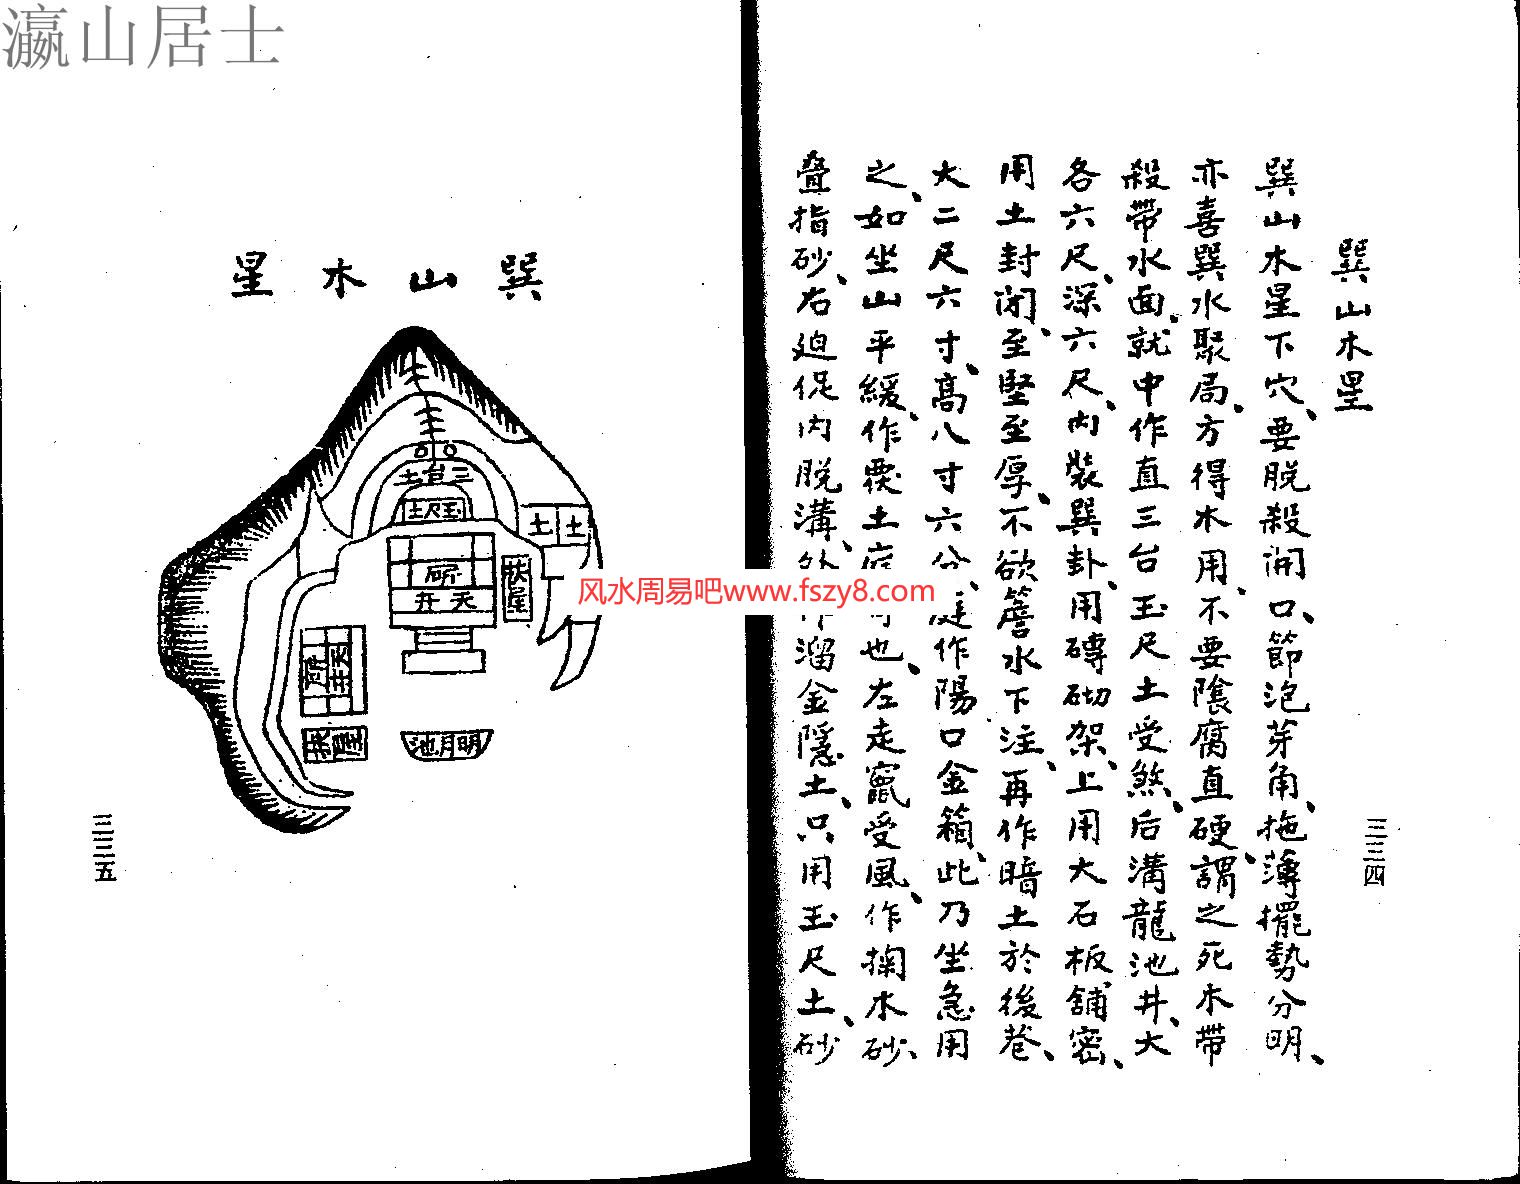 瀛山居士
巽山木星
巽山木星下穴、要脱殺開口、節泡芽角、拖薄擺勢分明、
亦喜巽水聚局、方得木用、不要陰腐直硬、謂之死木帶
殺帶水面、就中作直三台玉尺土受煞、后溝龍池井、大
各六尺、深六尺、內裝巽卦、用磚砌架、上用大石板舖密、
用土封閉、至堅至厚、不欲簷水下注、再作暗土於後巷、
大二尺六寸、高八寸六分、庭作陽口金箱、此乃坐急用
之、如坐山平緩、作覆土也、左走竄受風、作掬水砂、
叠指砂、右迫促內脱溝、溜金隱土、只用玉尺土、砂
三三四
巽山木星
三台土
玉尺土
土土
廳
天井
伏屋
廳
天井
伏屋
明月池
三三五
风水周易吧www.fszy8.com